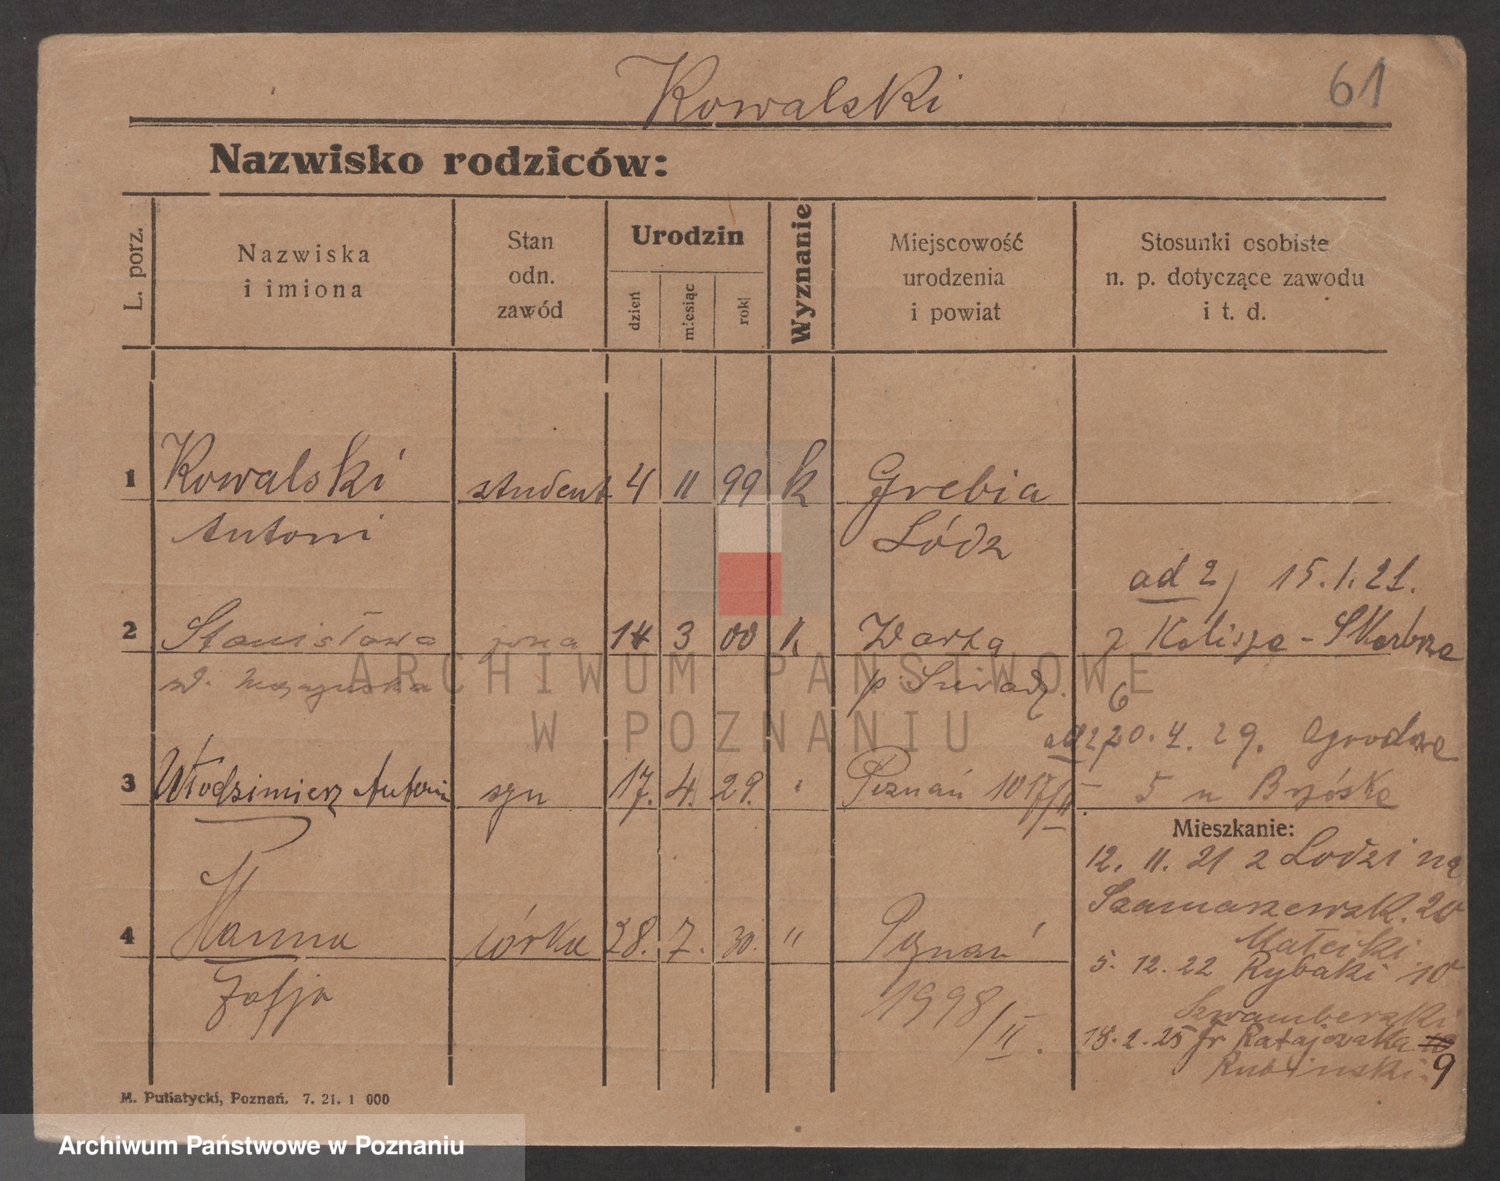 Kowalski
61
Nazwisko rodziców:
L. porz.
Nazwiska
i imiona
Stan
odn.
zawód
Urodzin
dzień
miesiąc
rok
Wyznanie
Miejscowość
urodzenia
i powiat
Stosunki osobiste
n. p. dotyczące zawodu
i t. d.
1 Kowalski student 4 11 99 k Grebia
Antoni Łódz
ad 2) 15.1.21.
2 Stanisława żona 14 3 00 k. Warta z Kalisza -
p. Sieradz.
6
20. 4. 29. Ogrodowa
3 Włodzimierz Antoni syn 17. 4. 29. " Poznań 1017/II 5 u
Mieszkanie:
12. 11. 21 z Łodzi na
20
Matejki
4 Hanna córka 28. 7. 30. " Poznań
5. 12. 22 Rybaki 10
Zofja 1998/II.
18. 2. 25 Fr Ratajczaka 10
Rubinski 9
M. Putiatycki, Poznań. 7. 21. 1 000
ARCHIWUM PAŃSTWOWE
W POZNANIU
Archiwum Państwowe w Poznaniu